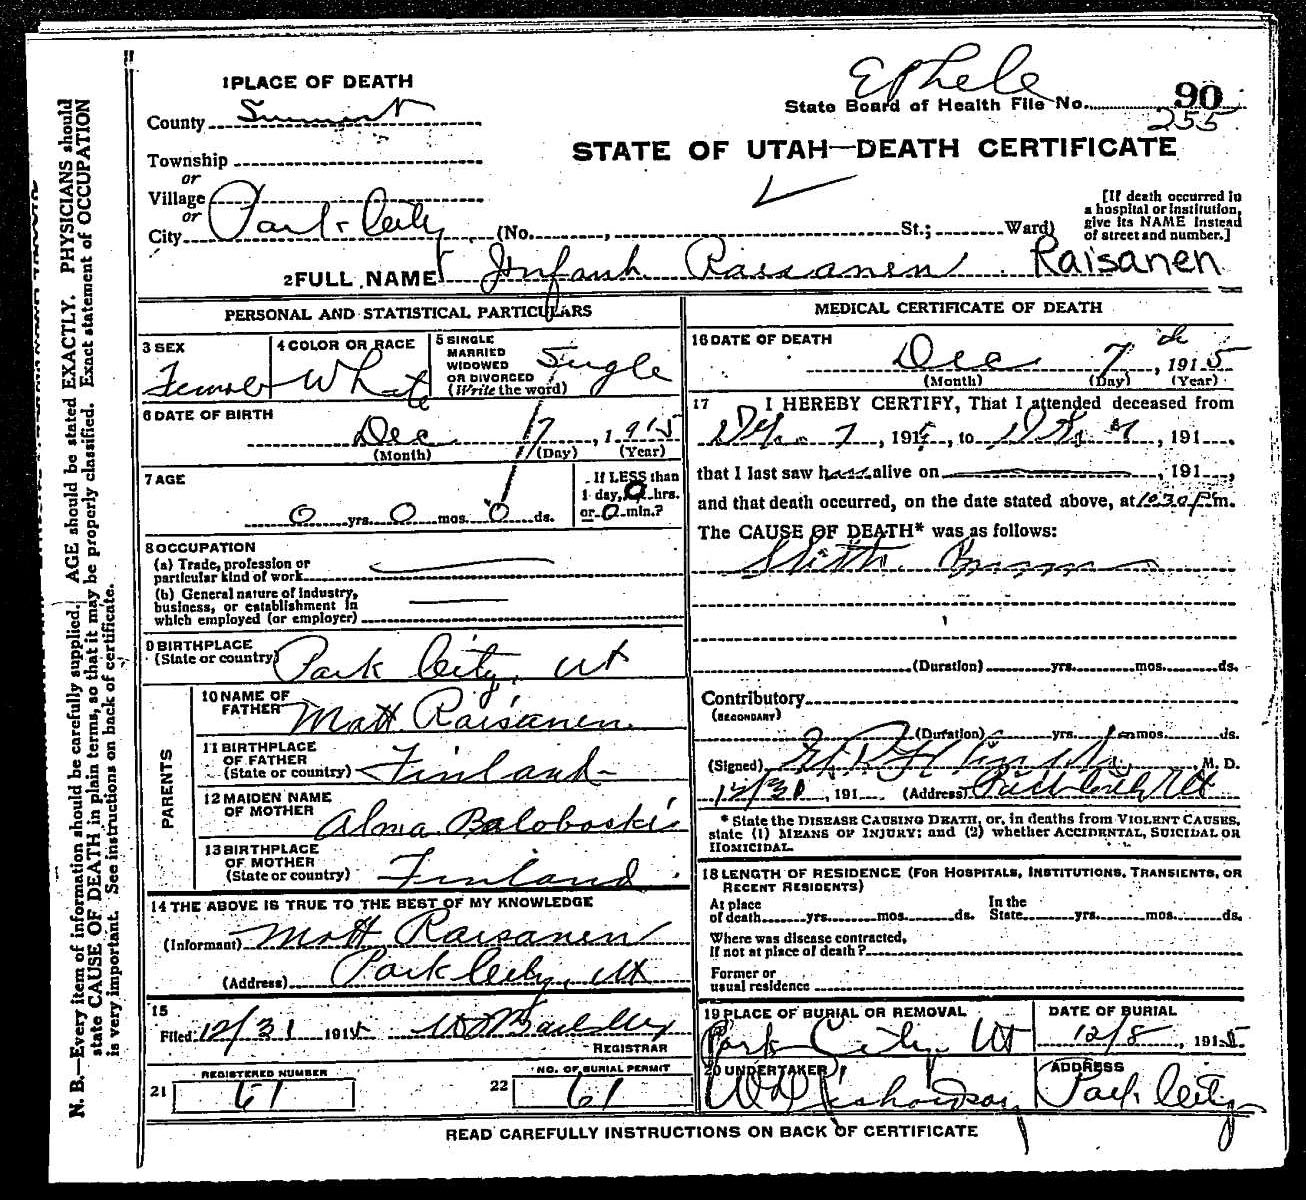 Ephele
1 PLACE OF DEATH
State Board of Health File No. 90
255
County Summit
STATE OF UTAH—DEATH CERTIFICATE
Township
or
Village
or
City Park City (No. , St.; Ward)
[If death occurred in
a hospital or institution,
give its NAME instead
of street and number.]
2 FULL NAME Infant Raisanen Raisanen
PERSONAL AND STATISTICAL PARTICULARS
3 SEX Female
4 COLOR OR RACE White
5 SINGLE
MARRIED
WIDOWED
OR DIVORCED
(Write the word) Single
6 DATE OF BIRTH
Dec 7, 1915
(Month) (Day) (Year)
7 AGE
0 yrs. 0 mos. 0 ds.
If LESS than
1 day, 0 hrs.
or 0 min.?
8 OCCUPATION
(a) Trade, profession or
particular kind of work
(b) General nature of industry,
business, or establishment in
which employed (or employer)
9 BIRTHPLACE
(State or country) Park City, Ut
PARENTS
10 NAME OF
FATHER Matt Raisanen
11 BIRTHPLACE
OF FATHER
(State or country) Finland
12 MAIDEN NAME
OF MOTHER Alma Baloboski
13 BIRTHPLACE
OF MOTHER
(State or country) Finland
14 THE ABOVE IS TRUE TO THE BEST OF MY KNOWLEDGE
(Informant) Matt Raisanen
(Address) Park City, Ut
15
Filed 12/31 1915
REGISTRAR
21 REGISTERED NUMBER 61
22 NO. OF BURIAL PERMIT 61
MEDICAL CERTIFICATE OF DEATH
16 DATE OF DEATH
Dec 7th, 1915
(Month) (Day) (Year)
17 I HEREBY CERTIFY, That I attended deceased from
7, 1915, to 7, 191
that I last saw h alive on , 191 ,
and that death occurred, on the date stated above, at 10 30 P m.
The CAUSE OF DEATH* was as follows:
(Duration) yrs. mos. ds.
Contributory
(SECONDARY)
(Duration) yrs. mos. ds.
(Signed) M. D.
12/31, 191 (Address) Park City Ut
* State the DISEASE CAUSING DEATH, or, in deaths from VIOLENT CAUSES,
state (1) MEANS OF INJURY; and (2) whether ACCIDENTAL, SUICIDAL OR
HOMICIDAL.
18 LENGTH OF RESIDENCE (FOR HOSPITALS, INSTITUTIONS, TRANSIENTS, OR
RECENT RESIDENTS)
At place
of death yrs. mos. ds. In the
State yrs. mos. ds.
Where was disease contracted,
If not at place of death?
Former or
usual residence
19 PLACE OF BURIAL OR REMOVAL
Park City, Ut
DATE OF BURIAL
12/8, 1915
20 UNDERTAKER
W D Richardson
ADDRESS
Park City
READ CAREFULLY INSTRUCTIONS ON BACK OF CERTIFICATE
N. B.—Every item of information should be carefully supplied. AGE should be stated EXACTLY. PHYSICIANS should
state CAUSE OF DEATH in plain terms, so that it may be properly classified. Exact statement of OCCUPATION
is very important. See instructions on back of certificate.